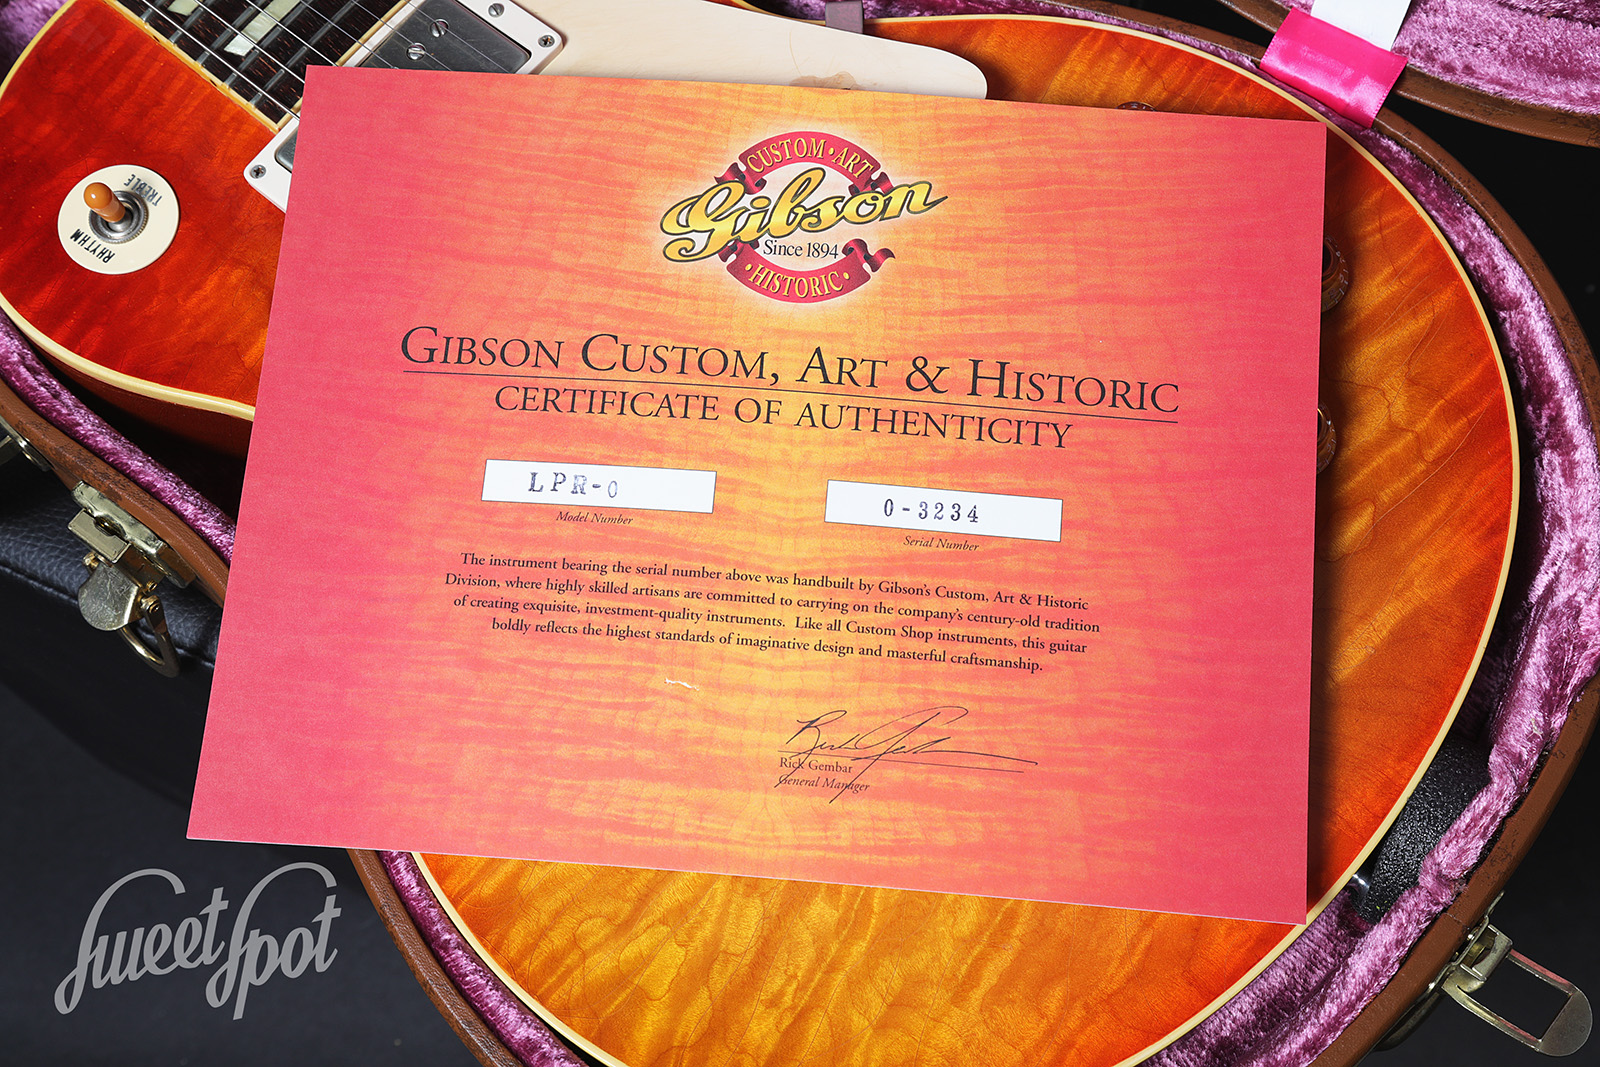 TREBLE
RHYTHM
CUSTOM • ART
Gibson
Since 1894
• HISTORIC •
GIBSON CUSTOM, ART & HISTORIC
CERTIFICATE OF AUTHENTICITY
LPR-0
0-3234
Model Number
Serial Number
The instrument bearing the serial number above was handbuilt by Gibson's Custom, Art & Historic
Division, where highly skilled artisans are committed to carrying on the company's century-old tradition
of creating exquisite, investment-quality instruments. Like all Custom Shop instruments, this guitar
boldly reflects the highest standards of imaginative design and masterful craftsmanship.
Rick Gembar
General Manager
Sweet Spot